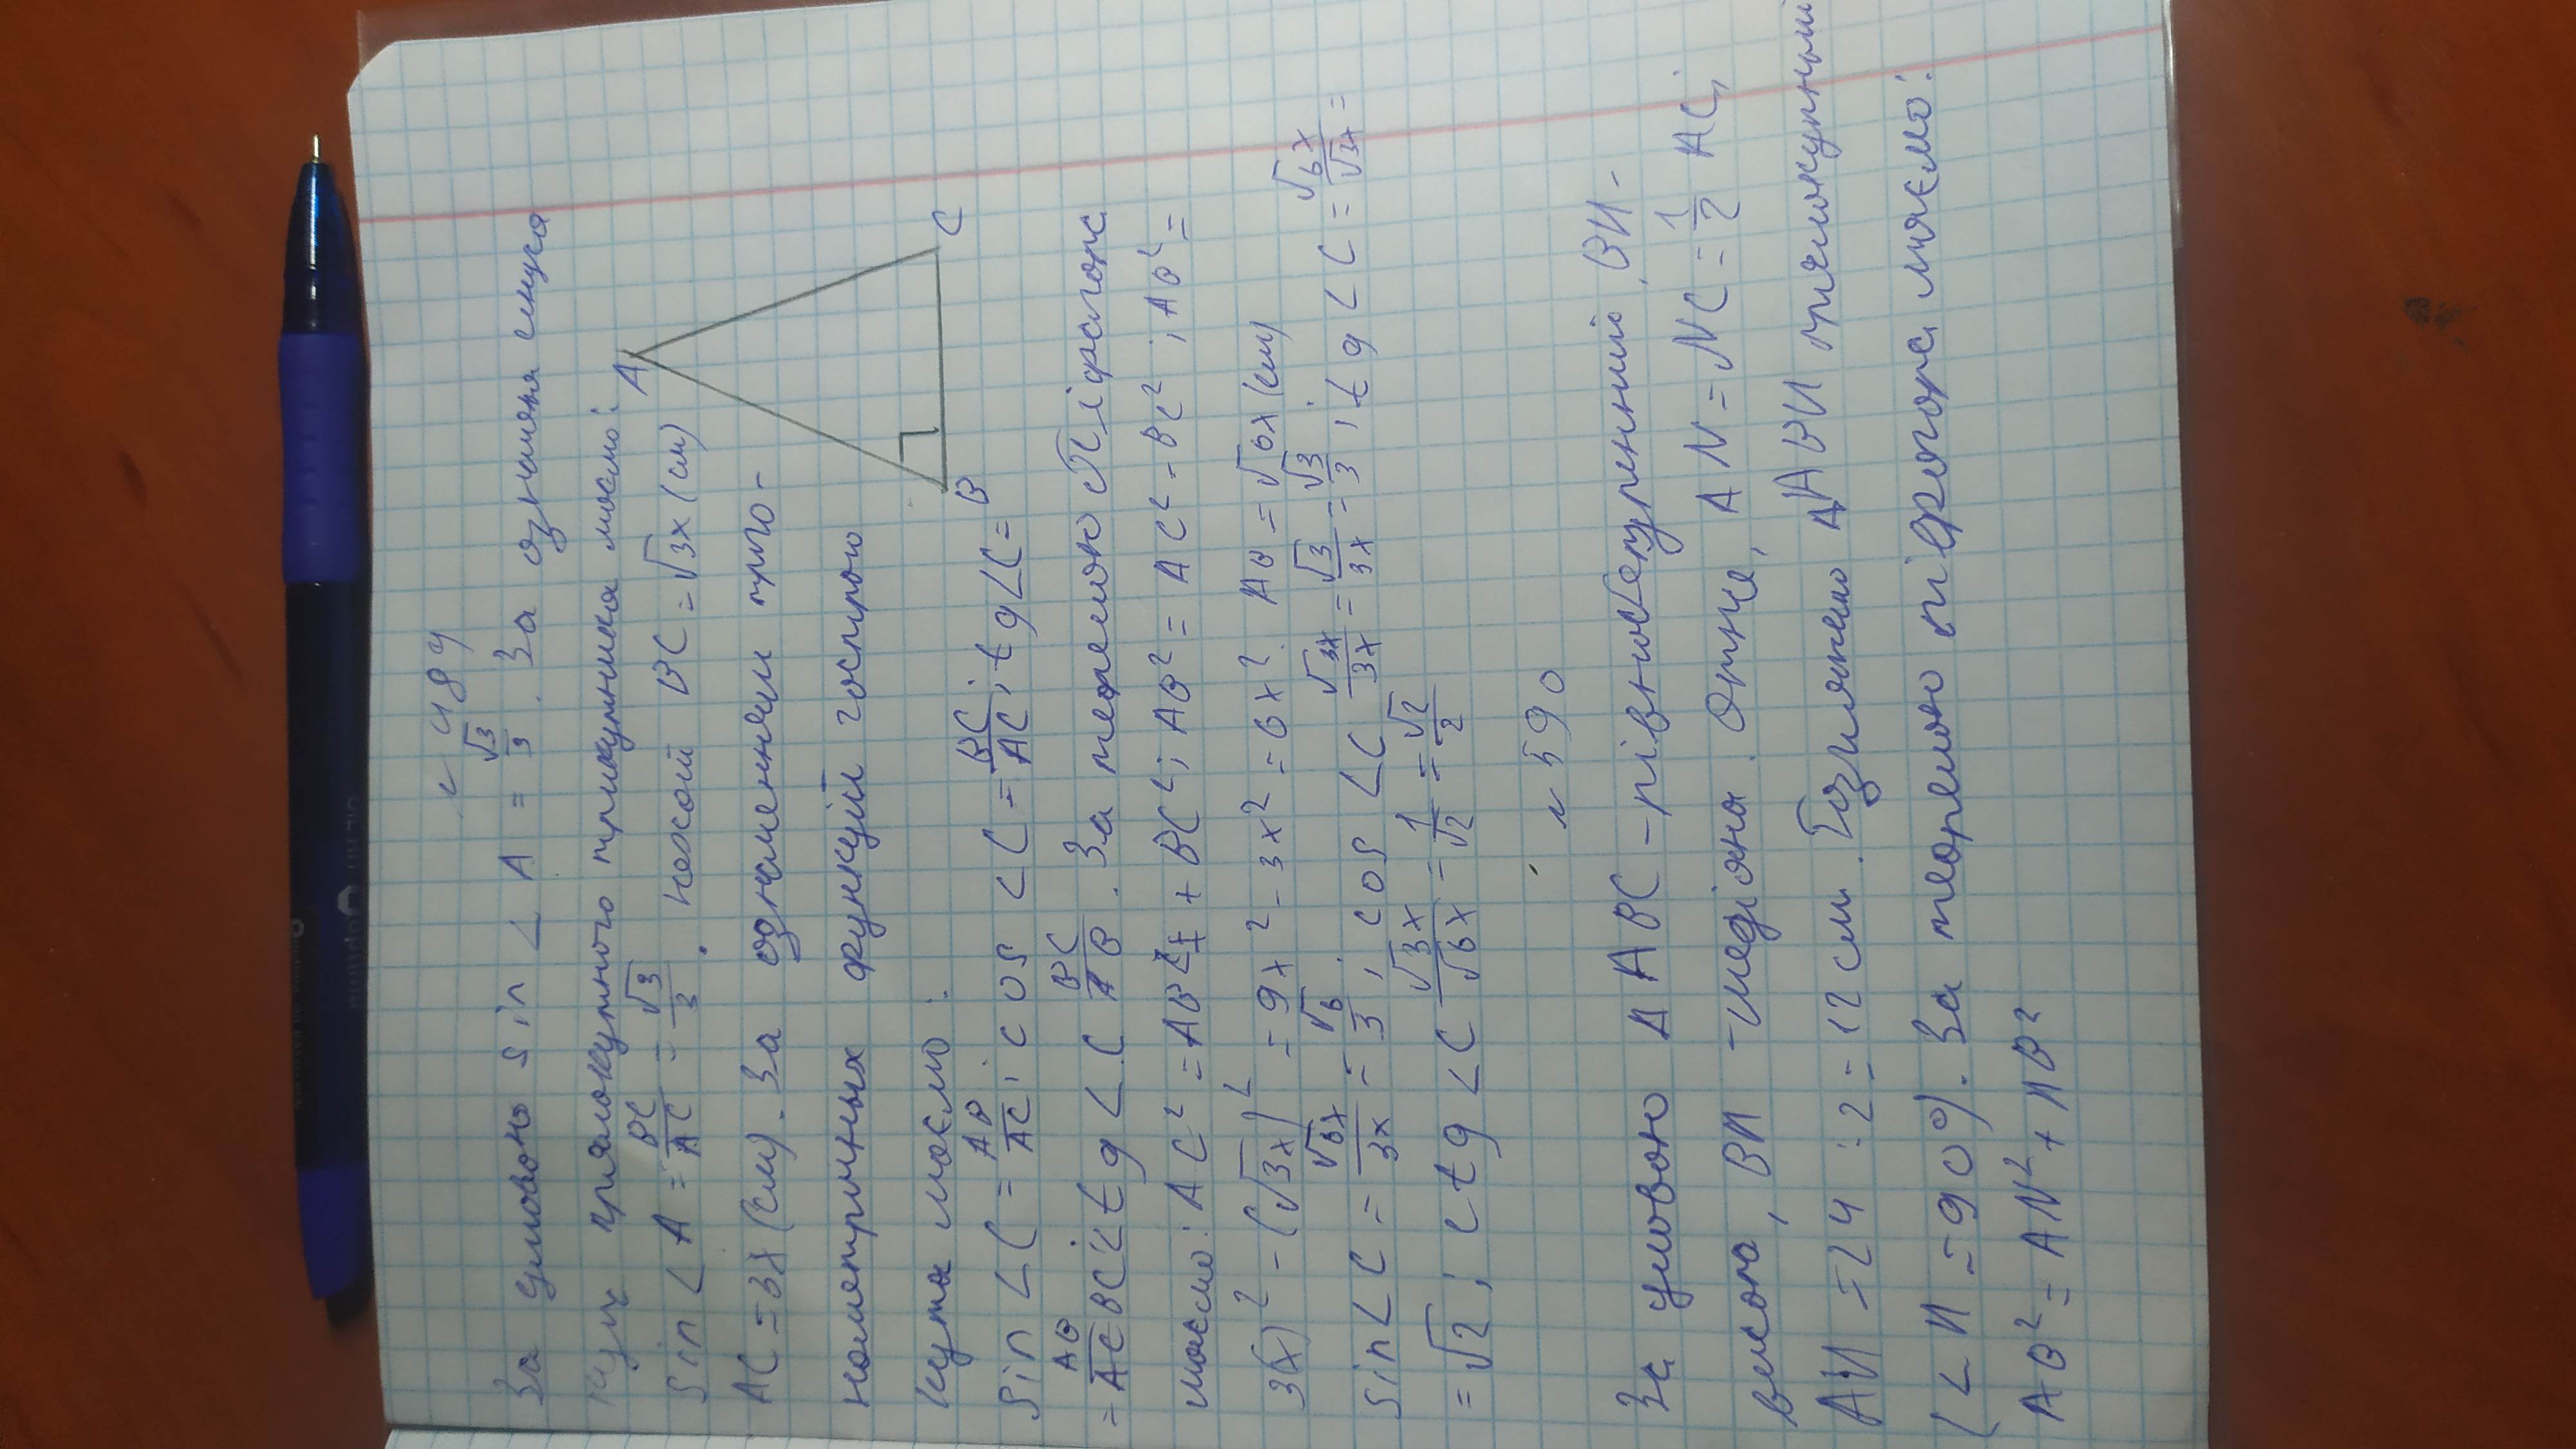 № 489
За умовою sin ∠ A = √3/3 . За означення синуса
кута прямокутного трикутника маємо:
sin ∠ A = BC/AC = √3/3 . Нехай BC = √3x (см)
AC = 3x (см). За означенням триго-
нометричних функцій гострого
кута маємо:
A
B
C
sin ∠C = AB/AC ; cos ∠C = BC/AC ; tg ∠C =
= AB/BC ; ctg ∠C BC/AB . За теоремою Піфагора
маємо: AC² = AB² + BC² ; AB² = AC² - BC² ; AB² =
3(x)² - (√3x)² = 9x² - 3x² = 6x² . AB = √6x (см)
sin ∠C = √6x/3x = √6/3 ; cos ∠C √3x/3x = √3/3x = √3/3 ; tg ∠C = √6x/√3x =
= √2 ; ctg ∠C √3x/√6x = 1/√2 = √2/2
№ 590
За умовою Δ ABC - рівнобедрений, BN -
висота, BN - медіана. Отже, AN = NC = 1/2 AC,
AN = 24 : 2 = 12 см. Розглянемо ΔABN прямокутний
(∠ N = 90°). За теоремою піфагора маємо:
AB² = AN² + NB²